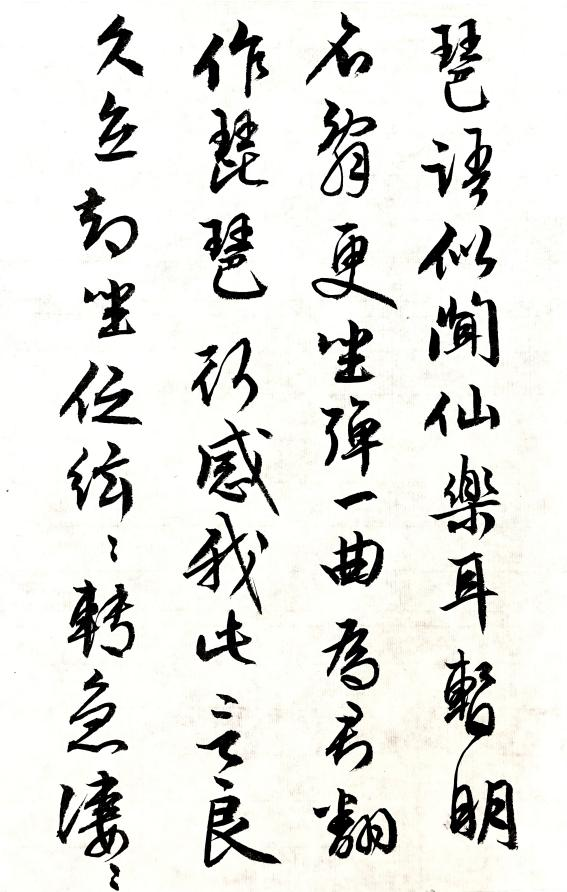 琶語似聞仙樂耳暫明
更坐彈一曲為君翻
作琵琶行感我此言良
久立却坐促絃〻轉急淒〻